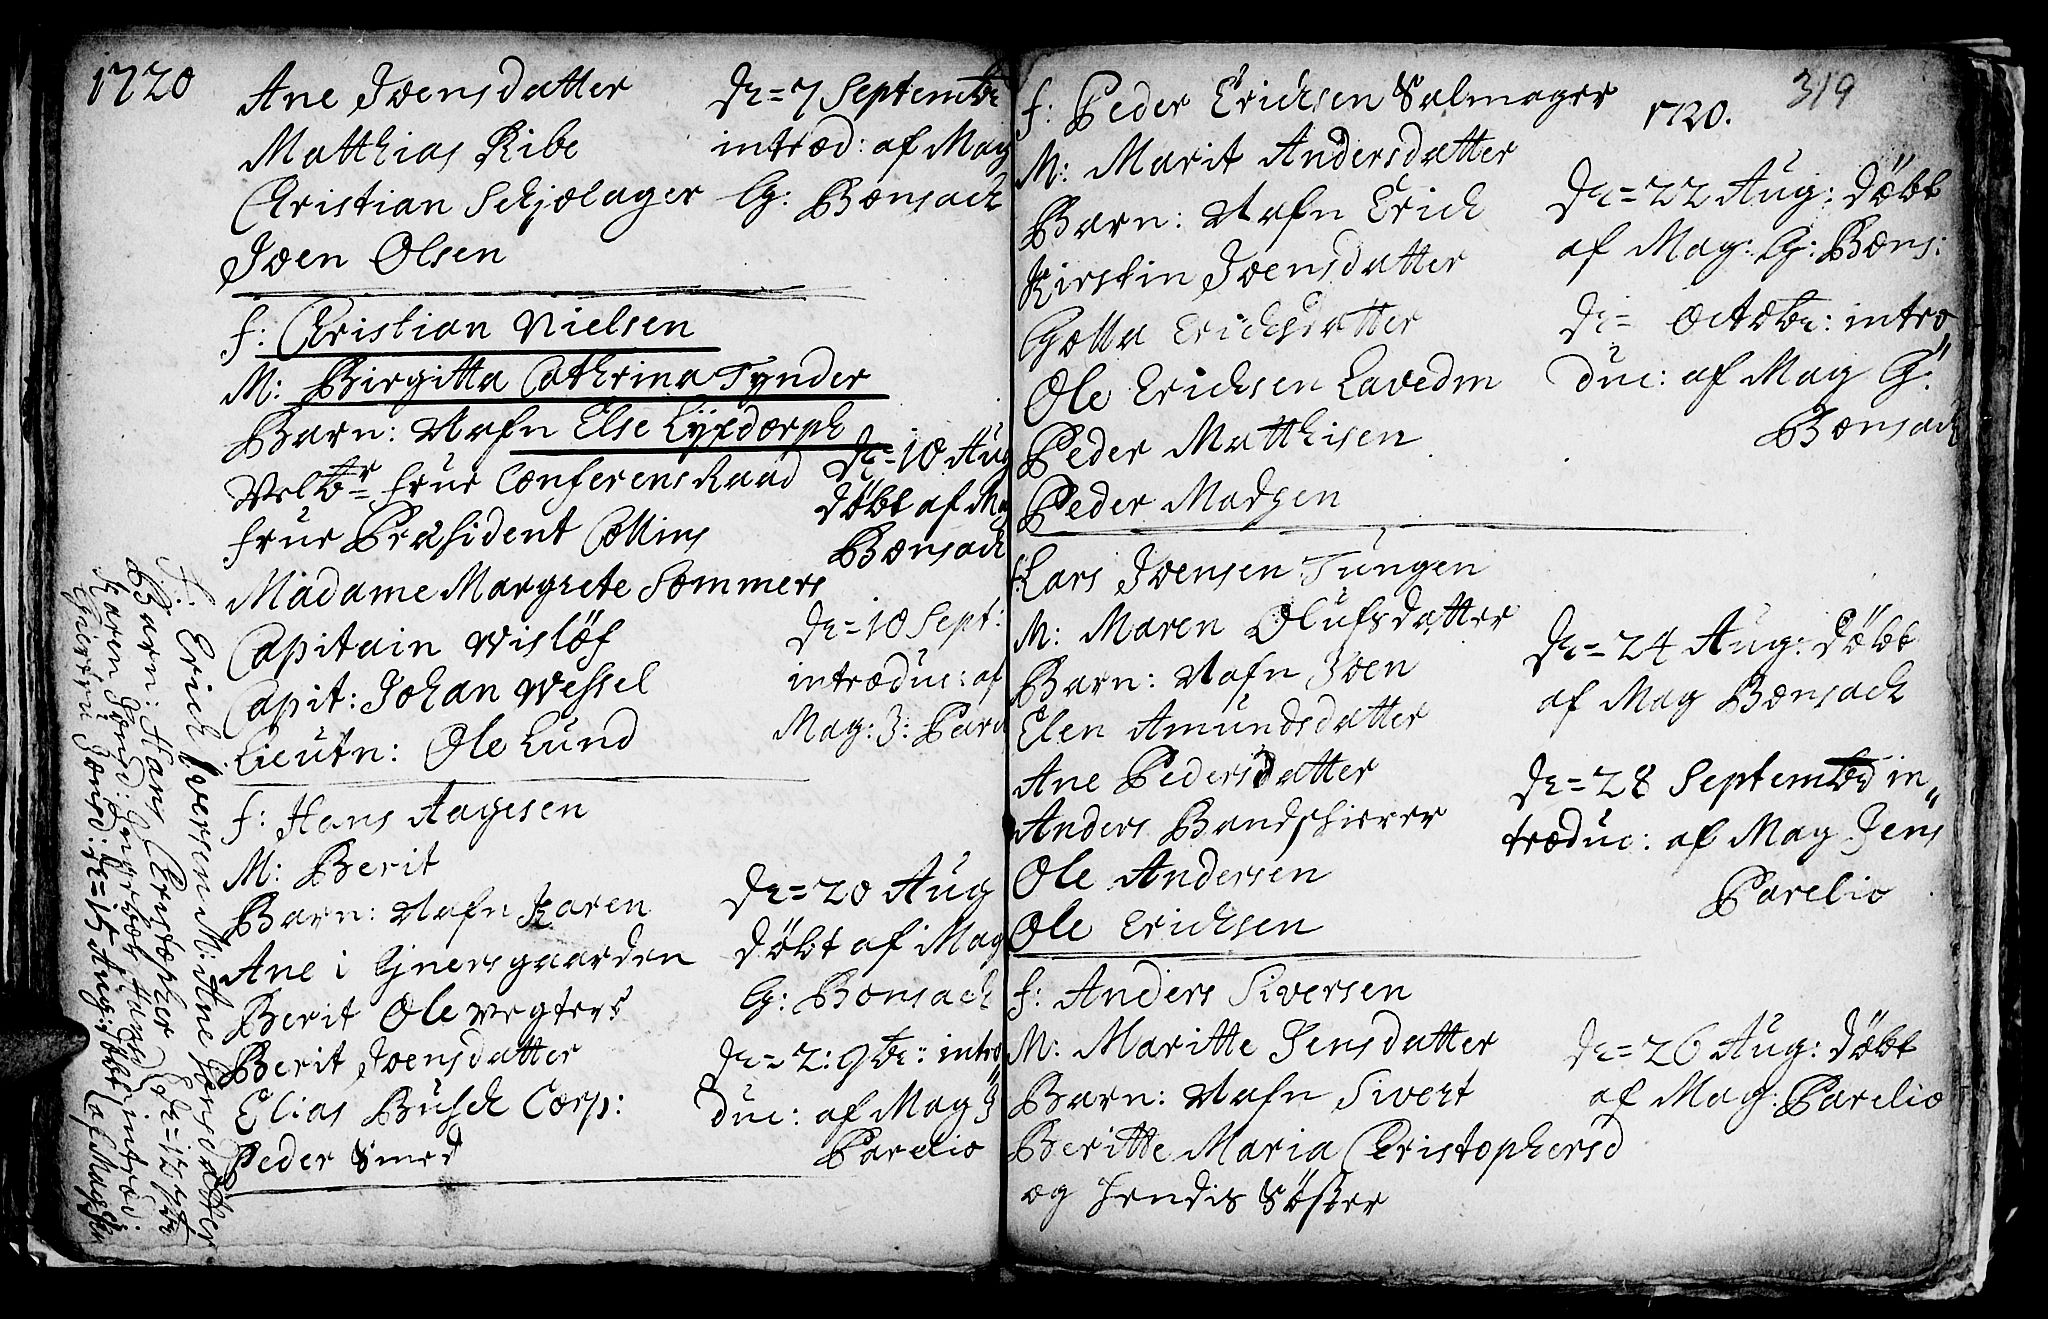 1720
Ane Joensdatter
Matthias Ribe
Christian Schjolager
Joen Olsen
De=7 Septembr
introd: af Mag
G: Bonsach
f: Christian Nielsen
M: Birgitta Cathrina Tynder
Barn: Nafn Else Lyxdorph
Velbr= Frue Conferens Raad
Frue Præsident Collins
Madame Margrete Sommers
Capitain Wislöf
Capit: Johan Wessel
Lieutn: Ole Lund
De=10 Aug
döbt af Mag
Bonsach
De=10 Sept:
introduc: af
Mag: J: Pare
f: Hans Aagesen
M: Berit
Barn: Nafn Karen
Ane i Ejnersgaarden
Berit Ole Vegters
Berit Joensdatter
Elias Busch Corp:
Peder Smed
De=20 Aug
döbt af Mag
G: Bonsach
De=2: 9br: intro
duc: af Mag J
Parelio
F: Erich Iversen M: Ane Jensdatter
Barn: Hans Christopher
Karen
319
1720.
f: Peder Erichsen Salmager
M: Marit Andersdatter
Barn: Nafn Erich
Kirstin Joensdatter
Golla Erichsdatter
Ole Erichsen Lavedm
Peder Matthisen
Peder Madsen
De=22 Aug: döbt
af Mag: G: Bons:
De= Octobr: intro
duc: af Mag G:
Bonsach
f: Lars Joensen Tungen
M: Maren Olufsdatter
Barn: Nafn Joen
Elen Amundsdatter
Ane Pedersdatter
Anders Bandschierer
Ole Andersen
Ole Erichsen
De=24 Aug: döbt
af Mag Bonsach
De=28 Septembr in
troduc: af Mag Jens
Parelio
f: Anders Siversen
M: Maritte Jensdatter
Barn: Nafn Sivert
Beritte Maria Christophersd
og hendis Söster
De=26 Aug: döbt
af Mag: Parelio